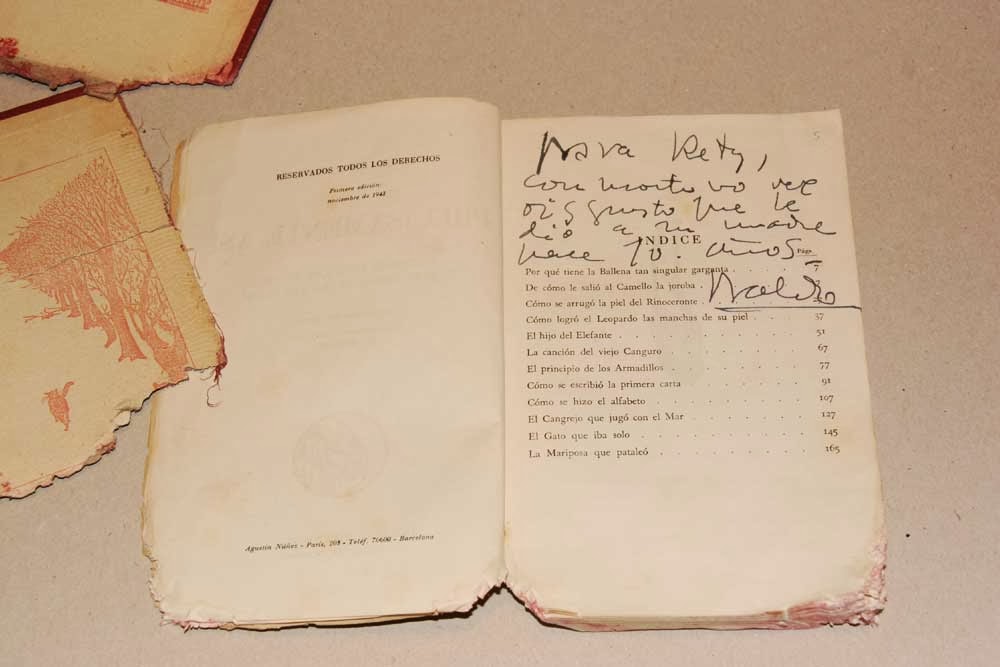 RESERVADOS TODOS LOS DERECHOS
Primera edición:
noviembre de 1943
Agustín Núñez - París, 208 - Teléf. 76600 - Barcelona
5
para Kety,
con motivo del
disgusto que le
dio a su madre
hace 10. años
INDICE
Págs.
Por qué tiene la Ballena tan singular garganta . . . . 7
De cómo le salió al Camello la joroba .
Cómo se arrugó la piel del Rinoceronte .
Cómo logró el Leopardo las manchas de su piel . . . 37
El hijo del Elefante . . . . . . . . . 51
La canción del viejo Canguro . . . . . . . 67
El principio de los Armadillos . . . . . . . 77
Cómo se escribió la primera carta . . . . . . 91
Cómo se hizo el alfabeto . . . . . . . . 107
El Cangrejo que jugó con el Mar . . . . . . 127
El Gato que iba solo . . . . . . . . . 145
La Mariposa que pataleó . . . . . . . . 165